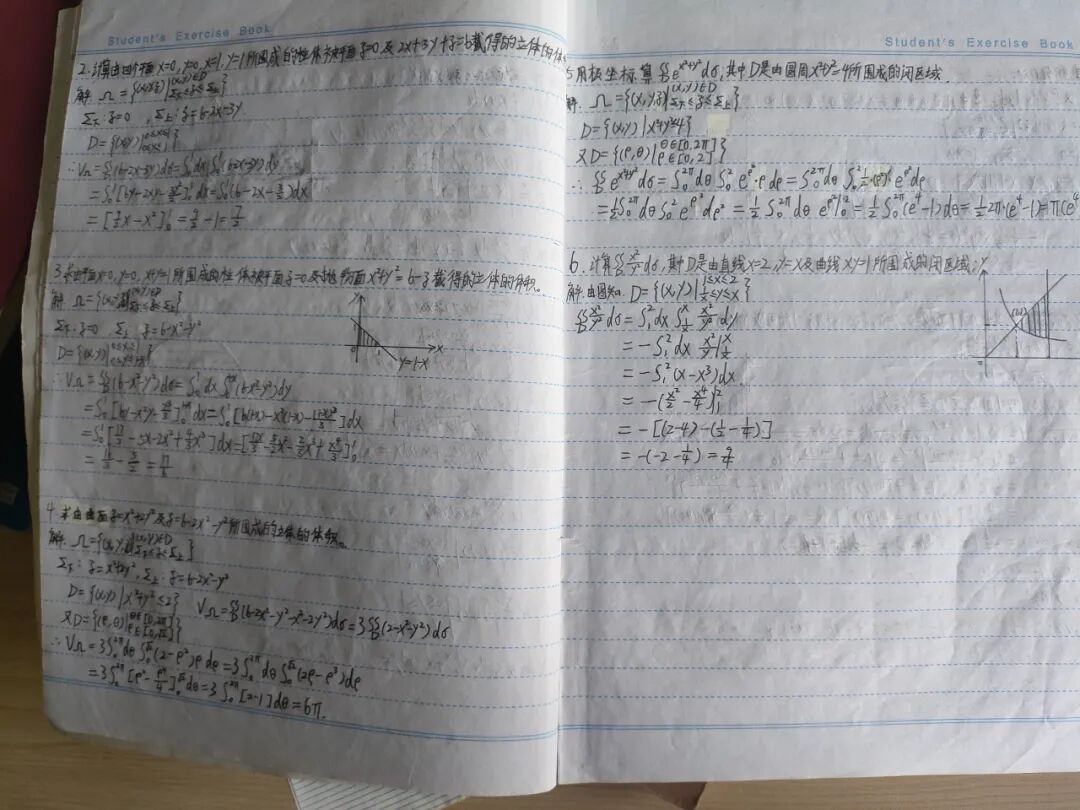 Student's Exercise Book
2.计算由四个平面x=0,y=0,x=1,y=1所围成的柱体被平面z=0及2x+3y+z=6截得的立体的体
解 Ω={(x,y,z)|(x,y)∈D Σ下≤z≤Σ上}
Σ下:z=0 ,Σ上:z=6-2x-3y.
D={(x,y)|0≤x≤1 0≤y≤1}
∴VΩ=∬D(6-2x-3y)dσ=∫₀¹dx∫₀¹(6-2x-3y)dy
=∫₀¹[6y-2xy-3/2y²]₀¹dx=∫₀¹(6-2x-3/2)dx
=[9/2x-x²]₀¹=9/2-1=7/2
3.求由平面x=0,y=0,x+y=1所围成的柱体被平面z=0及抛物面x²+y²=6-z截得的立体的体积。
解 Ω={(x,y,z)|(x,y)∈D Σ下≤z≤Σ上}
Σ下:z=0 Σ上:z=6-x²-y²
D={(x,y)|0≤x≤1 0≤y≤1-x}
y x 0 y=1-x
∴VΩ=∬D(6-x²-y²)dσ=∫₀¹dx∫₀¹⁻ˣ(6-x²-y²)dy
=∫₀¹[6y-x²y-y³/3]₀¹⁻ˣdx=∫₀¹[6(1-x)-x²(1-x)-(1-x)³/3]dx
=17/6
4.求由曲面z=x²+2y²及z=6-2x²-y²所围成的立体的体积。
解 Ω={(x,y,z)|(x,y)∈D Σ下≤z≤Σ上}
Σ下:z=x²+2y²,Σ上:z=6-2x²-y²
D={(x,y)|x²+y²≤2} VΩ=∬D(6-2x²-y²-x²-2y²)dσ=3∬D(2-x²-y²)dσ
又D={(ρ,θ)|θ∈[0,2π] ρ∈[0,√2]}
∴VΩ=3∫₀²πdθ∫₀√²(2-ρ²)ρdρ=3∫₀²πdθ∫₀√²(2ρ-ρ³)dρ
=3∫₀²π[ρ²-ρ⁴/4]₀√²dθ=3∫₀²π[2-1]dθ=6π.
Student's Exercise Book
5.用极坐标算∬D e^(x²+y²)dσ,其中D是由圆周x²+y²=4所围成的闭区域.
解. Ω={(x,y,z)|(x,y)∈D Σ下≤z≤Σ上}
D={(x,y)|x²+y²≤4}
又D={(ρ,θ)|θ∈[0,2π] ρ∈[0,2]}
∴∬D e^(x²+y²)dσ=∫₀²πdθ∫₀²e^(ρ²)·ρdρ=∫₀²πdθ∫₀²1/2(ρ²)'e^(ρ²)dρ
=1/2∫₀²πdθ∫₀²e^(ρ²)dρ²=1/2∫₀²πdθ e^(ρ²)|₀²=1/2∫₀²π(e⁴-1)dθ=1/2·2π·(e⁴-1)=π(e⁴
6.计算∬D x²/y²dσ,其中D是由直线x=2,y=x及曲线xy=1所围成的闭区域.
解:由图知. D={(x,y)|1≤x≤2 1/x≤y≤x}
y (1,1) 0
∬D x²/y²dσ=∫₁²dx∫x²/y²dy
=-∫₁²dx x²/y|
=-∫₁²(x-x³)dx
=-(x²/2-x⁴/4)|₁²
=-[(2-4)-(1/2-1/4)]
=-(-2-1/4)=9/4